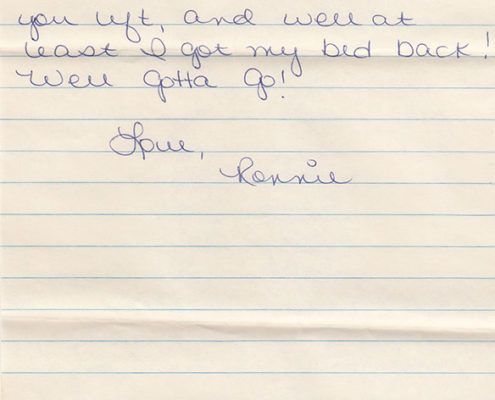 you left, and well at
least I got my bed back!
Well Gotta Go!
Love,
Ronnie